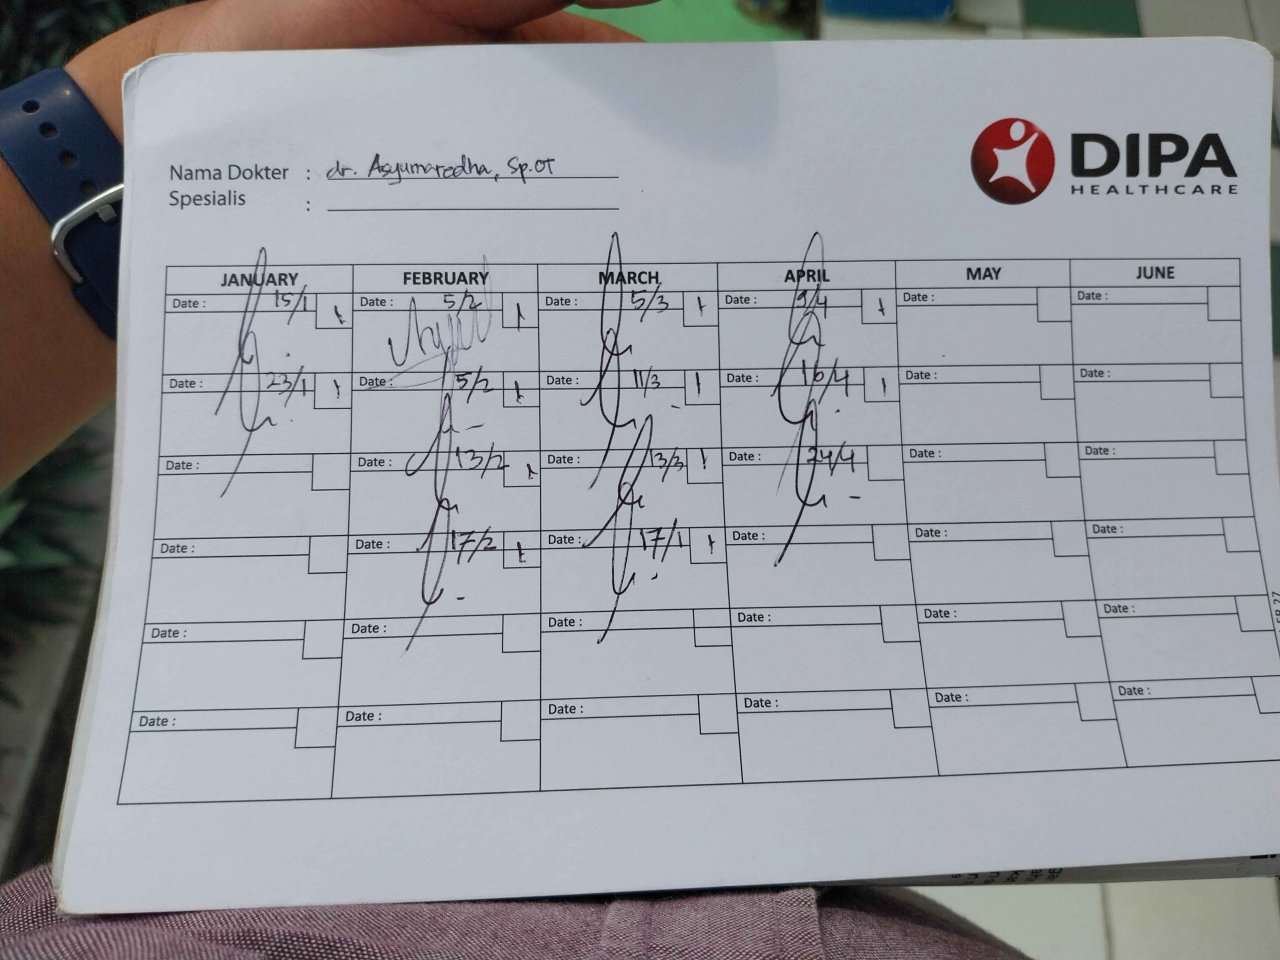 DIPA
HEALTHCARE
Nama Dokter : dr. Asyumaredha, Sp.OT
Spesialis :
JANUARY FEBRUARY MARCH APRIL MAY JUNE
Date : 15/1 1 Date : 5/2 1 Date : 5/3 1 Date : 9/4 1 Date : Date :
Date : 23/1 1 Date : 5/2 1 Date : 11/3 1 Date : 16/4 1 Date : Date :
Date : Date : 13/2 1 Date : 13/3 1 Date : 24/4 Date : Date :
Date : Date : 17/2 1 Date : 17/1 1 Date : Date : Date :
Date : Date : Date : Date : Date : Date :
Date : Date : Date : Date : Date : Date :